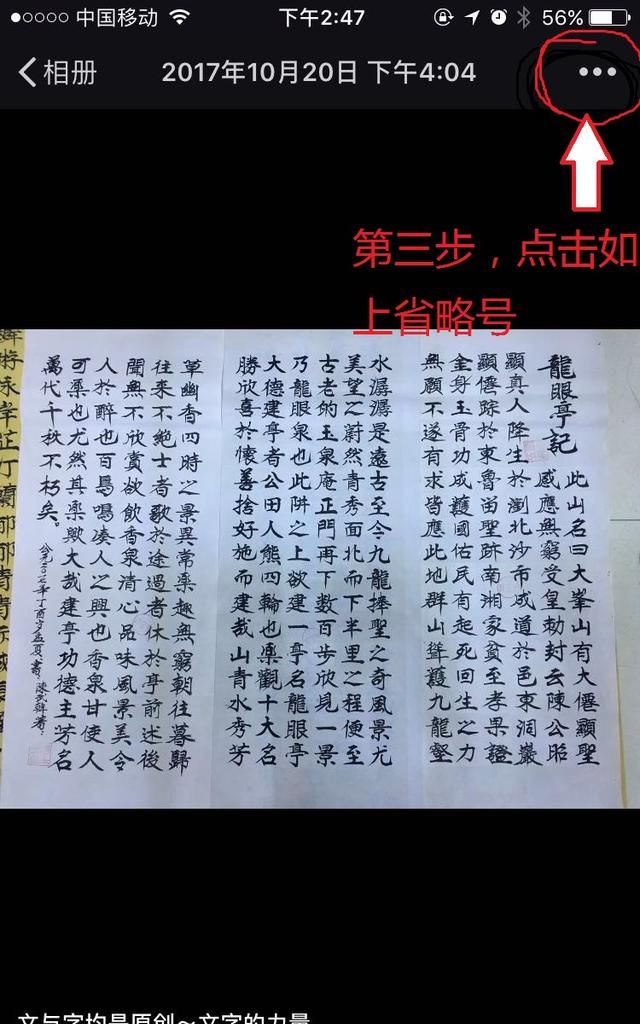 中国移动 下午2:47 56%
相册 2017年10月20日 下午4:04
第三步，点击如
上省略号
龍眼亭記
此山名曰大峯山有大僊顯聖
感應無窮受皇勅封去陳公昭
顯真人降生於瀏北沙市咸道於邑東洞巖
顯僊踪於東魯留聖跡南湘家貧至孝果證
金身玉骨功成護國佑民有起死回生之力
無願不遂有求皆應此地群山聳護九龍壑
水潺潺是遠古至今九龍捧聖之奇風景尤
美望之蔚然青秀面北而下半里之程便至
古老的玉泉庵正門再下數百步欣見一景
乃龍眼泉也此阱之上欲建一亭名龍眼亭
大德建亭者公田人熊四輪也樂觀十大名
勝欣喜於懷善捨好施而建哉山青水秀芳
草幽香四時之景異常樂趣無窮朝往暮歸
往來不絕士者歌於途過者休於亭前述後
聞無不欣賞欲飲香泉清心品味風景美令
人於醉也百鳥鳴凑人之興也香泉甘使人
可樂也尤然其樂歟大哉建亭功德主芳名
萬代千秋不朽矣。
丁酉岁孟夏
文与字均是原创~文字的力量